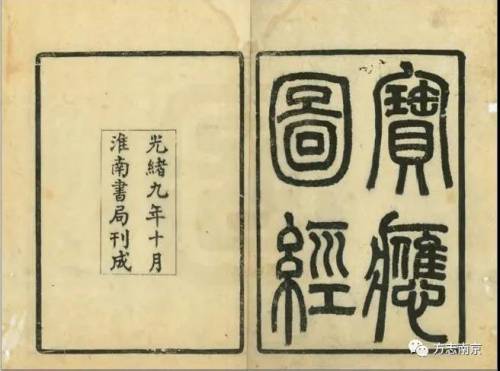 寶應
圖經
光緒九年十月
淮南書局刊成
方志南京